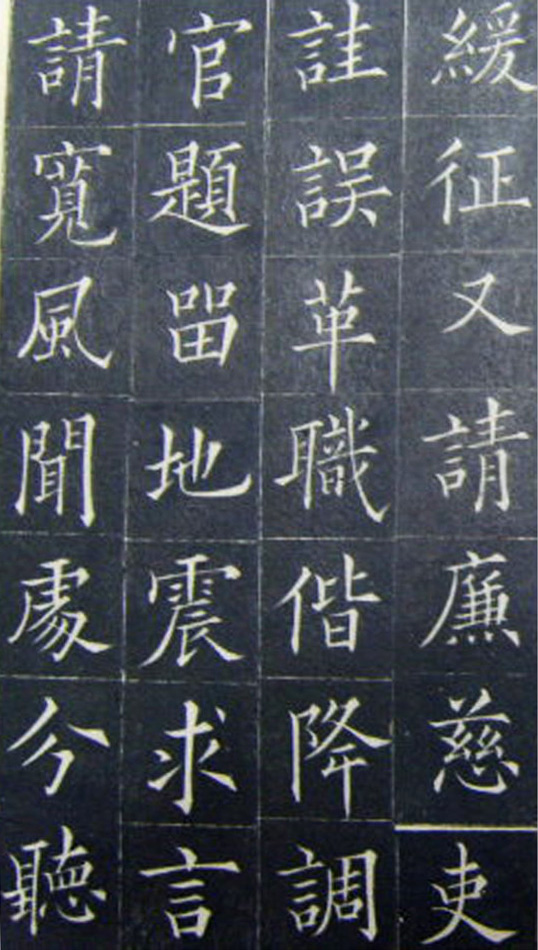 緩征又請廉慈吏
詿誤革職偕降調
官題畱地震求言
請寬風聞處分聽